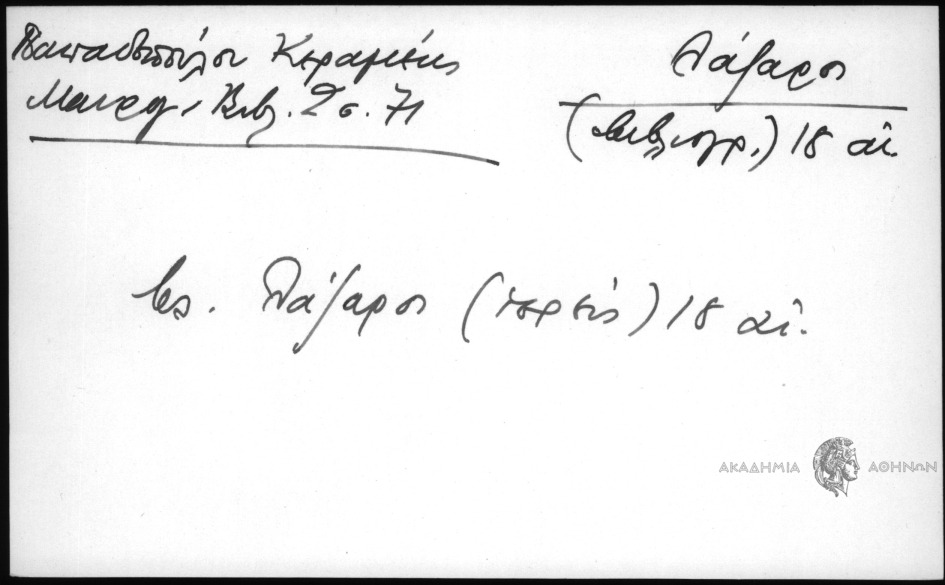 Παπαδοπούλου Κεραμεύς
Μαυρογ. Βιβ. 2 σ. 71
Λάζαρος
(βιβλιογρ.) 18 αἰ.
βλ. Λάζαρος (ἱερεύς) 18 αἰ.
ΑΚΑΔΗΜΙΑ ΑΘΗΝΩΝ